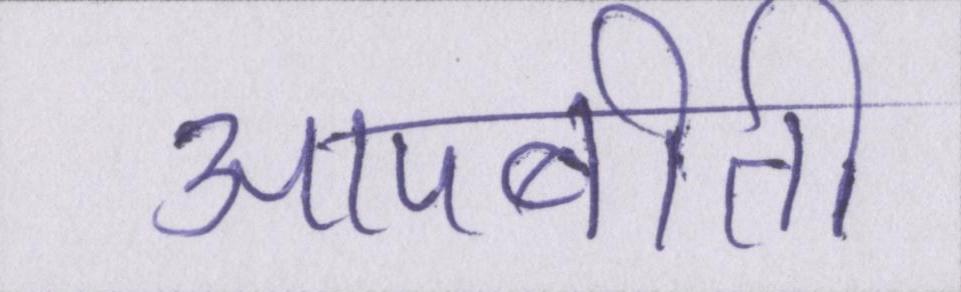 आपबीती